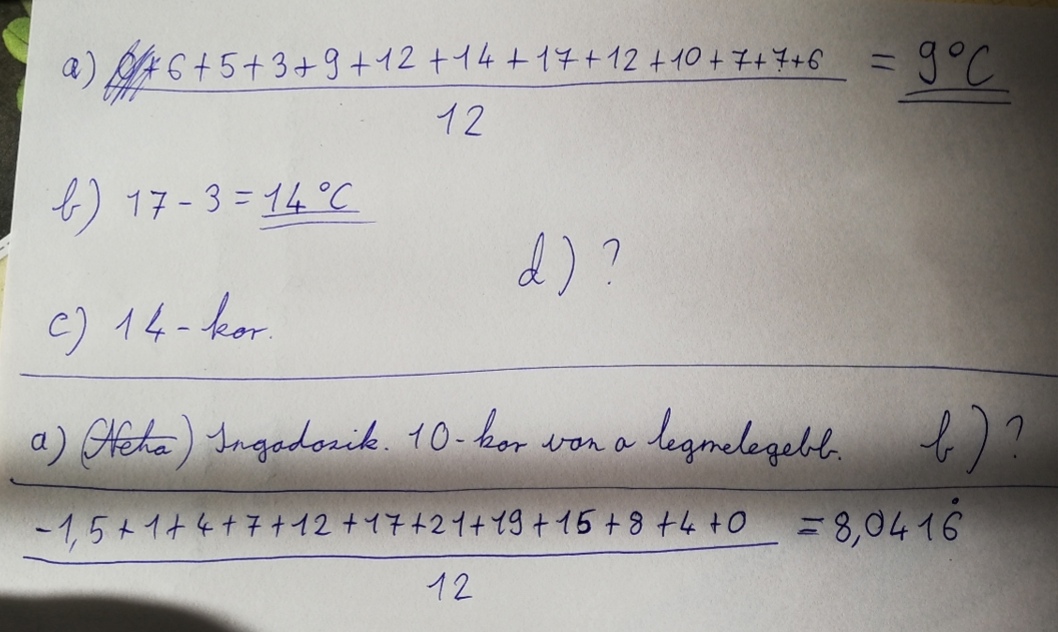 a) 6+5+3+9+12+14+17+12+10+7+7+6 = 9°C
12
b) 17-3=14°C
d) ?
c) 14-kor.
a) (Néha) Ingadozik. 10-kor van a legmelegebb. b) ?
-1,5+1+4+7+12+17+21+19+15+8+4+0 = 8,0416̇
12